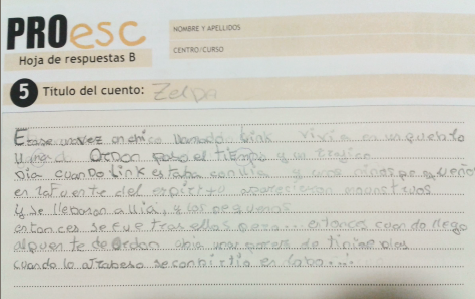 PROesc
Hoja de respuestas B
NOMBRE Y APELLIDOS
CENTRO/CURSO
5 Título del cuento: Zelda
Erase una vez un chico llamado Link vivia en un
Ordon paso el tiempo y un
Dia cuando Link estaba con ilia y unos niños pequeños
en la fuente del espiritu aparecieron
y se llebaron a ilia, y los pequeños
entonces se fue tras ellos pero... entonces cuando llego
al puente de Ordon abia una
cuando lo atrabeso se conbirtio en lobo...